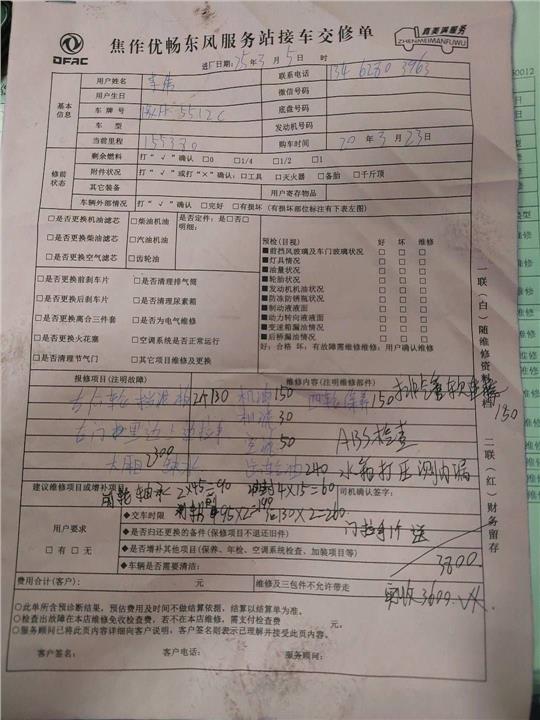 DFAC
焦作优畅东风服务站接车交修单
真美满服务
ZHENMEIMANFUWU
进厂日期:25年3月5日 时
基本信息
用户姓名
联系电话
用户生日
微信号码
车牌号
底盘号码
车型
发动机号码
当前里程 155330
购车时间 20年3月23日
修前状态
剩余燃料 打“√”确认 □0 □1/4 □1/2 □1
附件状况 打“√”或打“×”确认:□工具 □灭火器 □备胎 □千斤顶
其它装备 用户寄存物品
车辆外部情况 打“√”确认 □完好 □有损坏(有损坏部位标注有下表左图)
□是否更换机油滤芯 □柴油机油 是否定件:是□否□
□是否更换柴油滤芯 □汽油机油 明细:
□是否更换空气滤芯 □齿轮油
□是否更换前刹车片 □是否清理排气筒
□是否更换后刹车片 □是否清理尿素箱
□是否更换离合三件套 □是否为电气维修
□是否更换火花塞 □空调系统是否正常运行
□是否清理节气门 □其它项目维修及更换
预检(目视) 好 坏 维修
■前挡风玻璃及车门玻璃状况 □ □ □
■灯具情况 □ □ □
■油量状况 □ □ □
■轮胎状况 □ □ □
■发动机机油状况 □ □ □
■防冻防锈瓶状况 □ □ □
■制动液情况 □ □ □
■动力转向液液面 □ □ □
■变速箱漏油情况 □ □ □
■后桥漏油情况 □ □ □
好:合格 坏:有故障需维修维修:用户确认维修
一联(白)随维修资料存档
二联(红)财务留存
报修项目(注明故障) 维修内容(注明维修部件)
机油150
四轮保养150
150
机滤30
空滤50
ABS检查
齿轮油240
水箱打压测内漏
建议维修项目或增补项目:
前轮轴承2×45=90
油封4×15=60
司机确认签字:
用户要求
□有□无
◆交车时限
95×2=190
130×2=260
◆是否归还更换的备件(保修项目不退还旧件)
送
◆是否增补其他项目(保养、年检、空调系统检查、加装项目等)
◆车辆是否需要清洁:
3800.
费用合计(客户): 元 维修及三包件不允许带走
实收3600.
○此单所含预诊断结果,预估费用及时间不做结算依据,结算以结算单为准。
○检查出故障在本店维修免收检查费,若不在本店维修,需支付检查费 元。
○服务顾问已将此页内容详细向客户说明,客户签名则表示已理解并接受此页内容。
客户签名: 客户电话: 服务顾问: